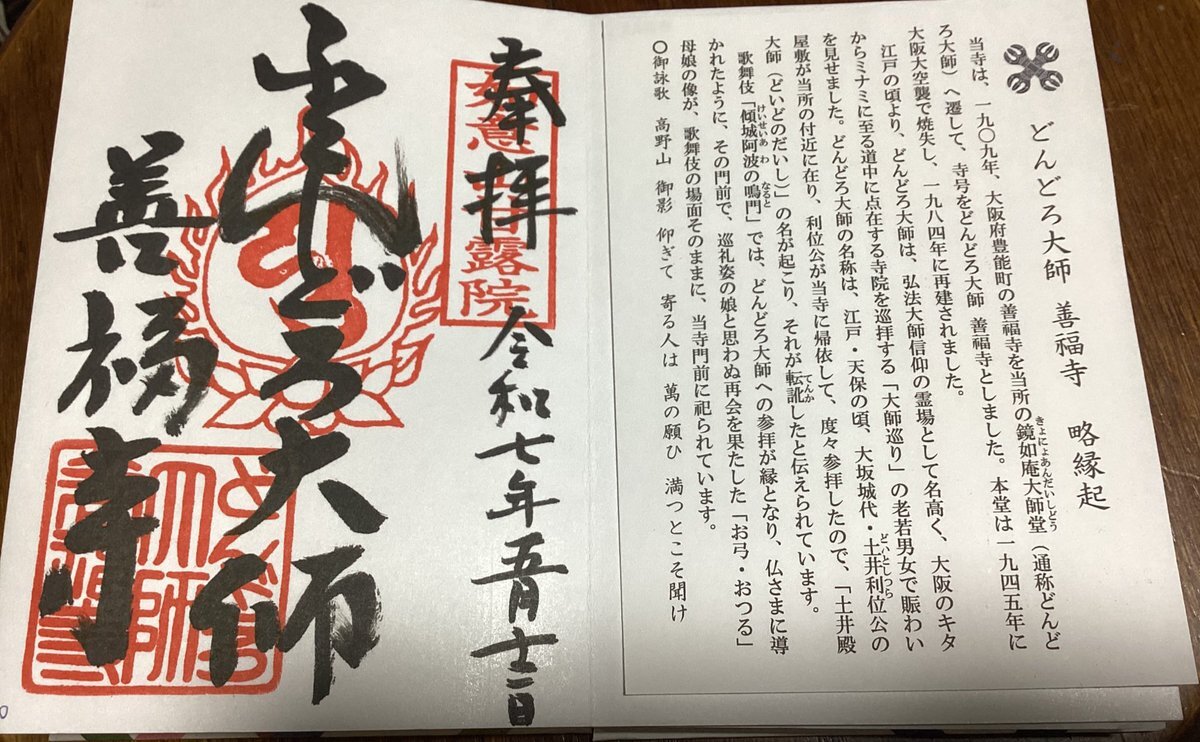 どんどろ大師 善福寺 略縁起
きょにょあんだいしどう
当寺は、一九〇九年、大阪府豊能町の善福寺を当所の鏡如庵大師堂(通称どんど
ろ大師)へ遷して、寺号をどんどろ大師 善福寺としました。本堂は一九四五年に
大阪大空襲で焼失し、一九八四年に再建されました。
江戸の頃より、どんどろ大師は、弘法大師信仰の霊場として名高く、大阪のキタ
からミナミに至る道中に点在する寺院を巡拝する「大師巡り」の老若男女で賑わい
どいとしつら
を見せました。どんどろ大師の名称は、江戸・天保の頃、大坂城代・土井利位公の
屋敷が当所の付近に在り、利位公が当寺に帰依して、度々参拝したので、「土井殿
てんか
大師(どいどのだいし)」の名が起こり、それが転訛したと伝えられています。
けいせいあわ なると
歌舞伎「傾城阿波の鳴門」では、どんどろ大師への参拝が縁となり、仏さまに導
かれたように、その門前で、巡礼姿の娘と思わぬ再会を果たした「お弓・おつる」
母娘の像が、歌舞伎の場面そのままに、当寺門前に祀られています。
〇御詠歌 高野山 御影 仰ぎて 寄る人は 萬の願ひ 満つとこそ聞け
奉拝
如意甘露院
令和七年五月
どんどろ大師
善福寺